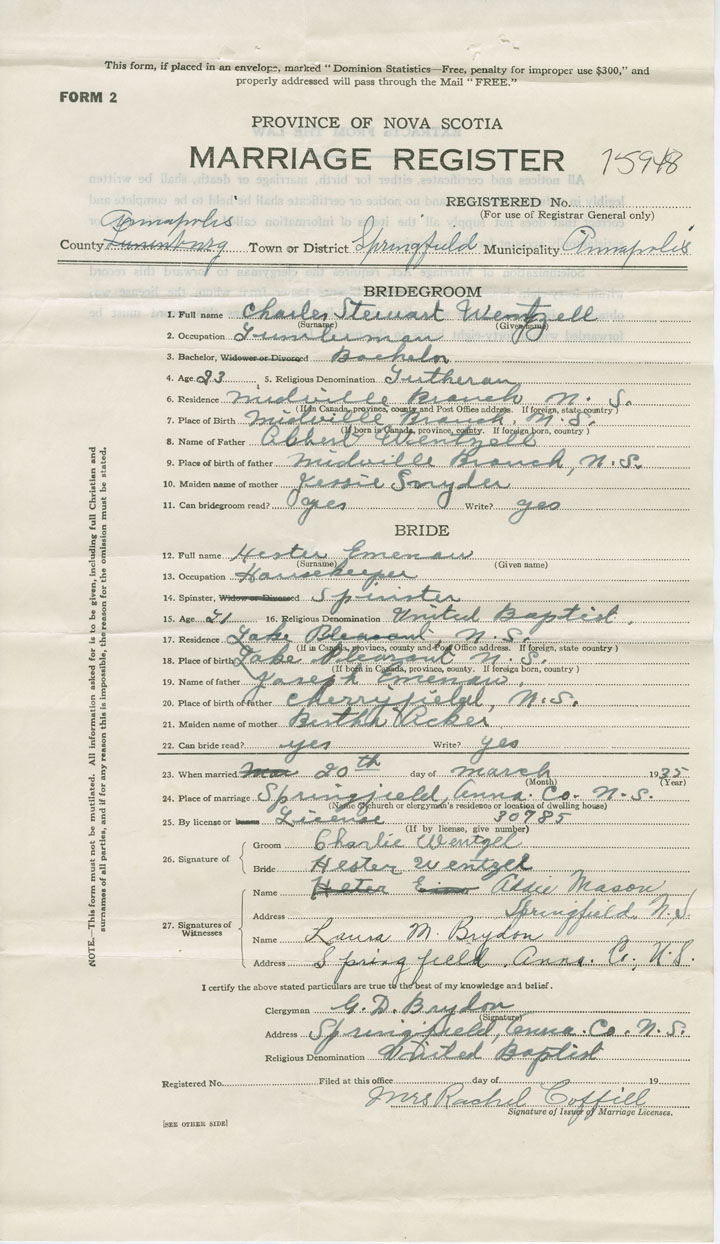 This form, if placed in an envelope, marked "Dominion Statistics—Free, penalty for improper use $300," and
properly addressed will pass through the Mail "FREE."
FORM 2
PROVINCE OF NOVA SCOTIA
MARRIAGE REGISTER 15948
REGISTERED No.
(For use of Registrar General only)
Annapolis
County Lunenburg Town or District Springfield Municipality Annapolis
BRIDEGROOM
1. Full name Charles Stewart Wentzell
(Surname) (Given name)
2. Occupation Lumberman
3. Bachelor, Widower or Divorced Bachelor
4. Age 23 5. Religious Denomination Lutheran
6. Residence Midville Branch N. S.
(If in Canada, province, county and Post Office address. If foreign, state country)
7. Place of Birth Midville Branch, N. S.
(If born in Canada, province, county. If foreign born, country)
8. Name of Father Albert Wentzell
9. Place of birth of father Midville Branch, N.S.
10. Maiden name of mother Jessie Snyder
11. Can bridegroom read? yes Write? yes
BRIDE
12. Full name Hester Emenau
(Surname) (Given name)
13. Occupation Housekeeper
14. Spinster, Widow or Divorced Spinster
15. Age 21 16. Religious Denomination United Baptist.
17. Residence Lake Pleasant, N.S.
(If in Canada, province, county and Post Office address. If foreign, state country)
18. Place of birth Lake Pleasant N. S.
(If born in Canada, province, county. If foreign born, country)
19. Name of father Joseph Emenau.
20. Place of birth of father Cherryfield, N.S.
21. Maiden name of mother Bertha Acker
22. Can bride read? yes Write? yes
23. When married Mar 20th day of March 1935
(Month) (Year)
24. Place of marriage Springfield, Anna. Co. N.S.
(Name of church or clergyman's residence or location of dwelling house)
25. By license or banns License 30785
(If by license, give number)
26. Signature of
Groom Charlie Wentzel
Bride Hester Wentzel
27. Signatures of Witnesses
Name Hester Addie Mason
Address Springfield, N.S.
Name Laura M. Brydon
Address Springfield, Anna. Co., N.S.
I certify the above stated particulars are true to the best of my knowledge and belief.
Clergyman G. D. Brydon
(Signature)
Address Springfield, Anna. Co. N.S.
Religious Denomination United Baptist
Registered No. Filed at this office day of 19
Mrs Rachel Coffill
Signature of Issuer of Marriage Licenses.
[SEE OTHER SIDE]
NOTE.—This form must not be mutilated. All information asked for is to be given, including full Christian and
surnames of all parties, and if for any reason this is impossible, the reason for the omission must be stated.